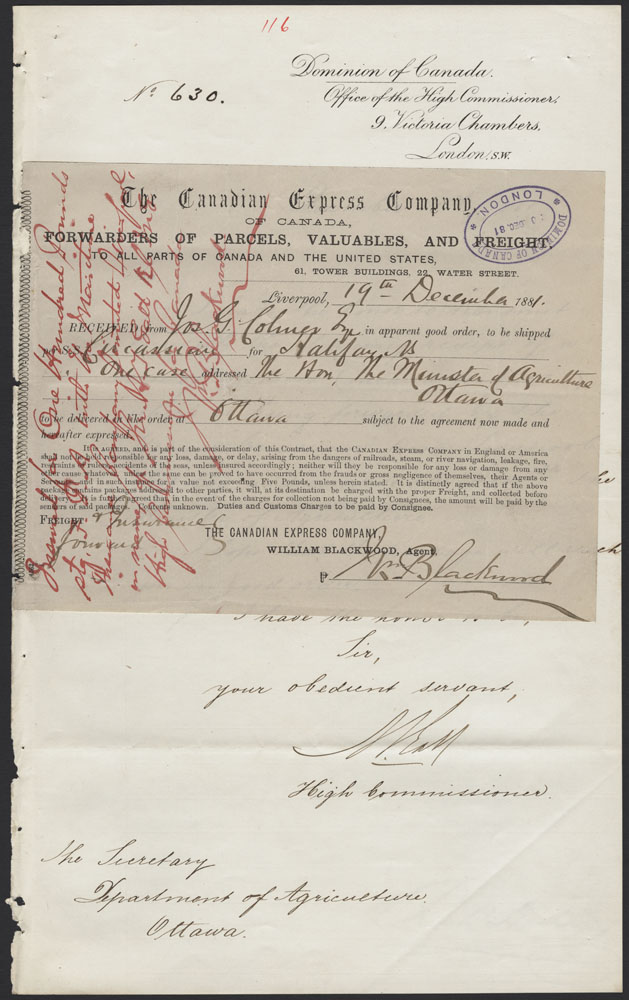 116
Dominion of Canada.
Office of the High Commissioner,
9, Victoria Chambers,
London, S.W.
No 630.
The Canadian Express Company,
OF CANADA,
FORWARDERS OF PARCELS, VALUABLES, AND FREIGHT
TO ALL PARTS OF CANADA AND THE UNITED STATES,
61, TOWER BUILDINGS, 22, WATER STREET.
DOMINION OF CANADA
DEC. 81
* LONDON *
Liverpool, 19th December 1881.
RECEIVED from Jos. G. Colmer Esq in apparent good order, to be shipped
Circassian for Halifax NS
One case addressed The Hon, The Minister of Agriculture
Ottawa
to be delivered in like order at Ottawa subject to the agreement now made and
hereafter expressed.
IT IS AGREED, and is part of the consideration of this Contract, that the CANADIAN EXPRESS COMPANY in England or America
not be held responsible for any loss, damage, or delay, arising from the dangers of railroads, steam, or river navigation, leakage, fire,
of the seas, unless insured accordingly; neither will they be responsible for any loss or damage from any
cause whatever, unless the same can be proved to have occurred from the frauds or gross negligence of themselves, their Agents or
Servants, and in such for a value not exceeding Five Pounds, unless herein stated. It is distinctly agreed that if the above
package contains packages addressed to other parties, it will, at its destination be charged with the proper Freight, and collected before
delivery. It is further agreed that, in the event of the charges for collection not being paid by Consignees, the amount will be paid by the
senders of said packages. Contents unknown. Duties and Customs Charges to be paid by Consignee.
FREIGHT & Insurance
forward
THE CANADIAN EXPRESS COMPANY,
WILLIAM BLACKWOOD, Agent.
Wm Blackwood
Insured for One Hundred Pounds
stg. with Maritime
Insurance Company Limited
in name of
High Commissioner Canada
Wm Blackwood
I have the honor
Sir,
your obedient servant,
High Commissioner.
The Secretary
Department of Agriculture.
Ottawa.